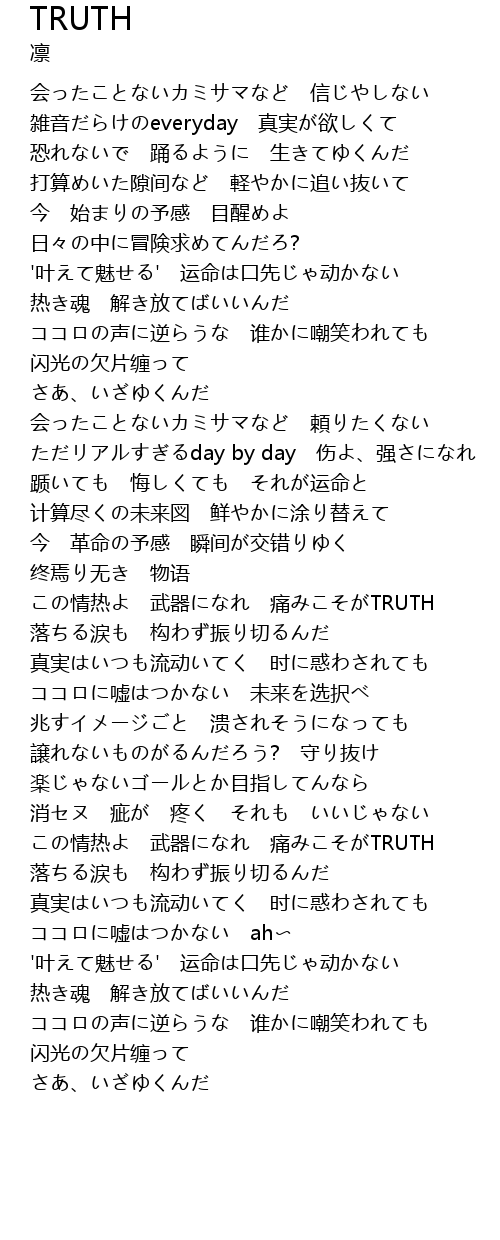 TRUTH
凛
会ったことないカミサマなど　信じやしない
雑音だらけのeveryday　真実が欲しくて
恐れないで　踊るように　生きてゆくんだ
打算めいた隙间など　軽やかに追い抜いて
今　始まりの予感　目醒めよ
日々の中に冒険求めてんだろ?
'叶えて魅せる'　运命は口先じゃ动かない
热き魂　解き放てばいいんだ
ココロの声に逆らうな　谁かに嘲笑われても
闪光の欠片缠って
さあ、いざゆくんだ
会ったことないカミサマなど　頼りたくない
ただリアルすぎるday by day　伤よ、强さになれ
踬いても　悔しくても　それが运命と
计算尽くの未来図　鮮やかに涂り替えて
今　革命の予感　瞬间が交错りゆく
终焉り无き　物语
この情热よ　武器になれ　痛みこそがTRUTH
落ちる涙も　构わず振り切るんだ
真実はいつも流动いてく　时に惑わされても
ココロに嘘はつかない　未来を选択べ
兆すイメージごと　溃されそうになっても
譲れないものがるんだろう?　守り抜け
楽じゃないゴールとか目指してんなら
消セヌ　疵が　疼く　それも　いいじゃない
この情热よ　武器になれ　痛みこそがTRUTH
落ちる涙も　构わず振り切るんだ
真実はいつも流动いてく　时に惑わされても
ココロに嘘はつかない　ah〜
'叶えて魅せる'　运命は口先じゃ动かない
热き魂　解き放てばいいんだ
ココロの声に逆らうな　谁かに嘲笑われても
闪光の欠片缠って
さあ、いざゆくんだ